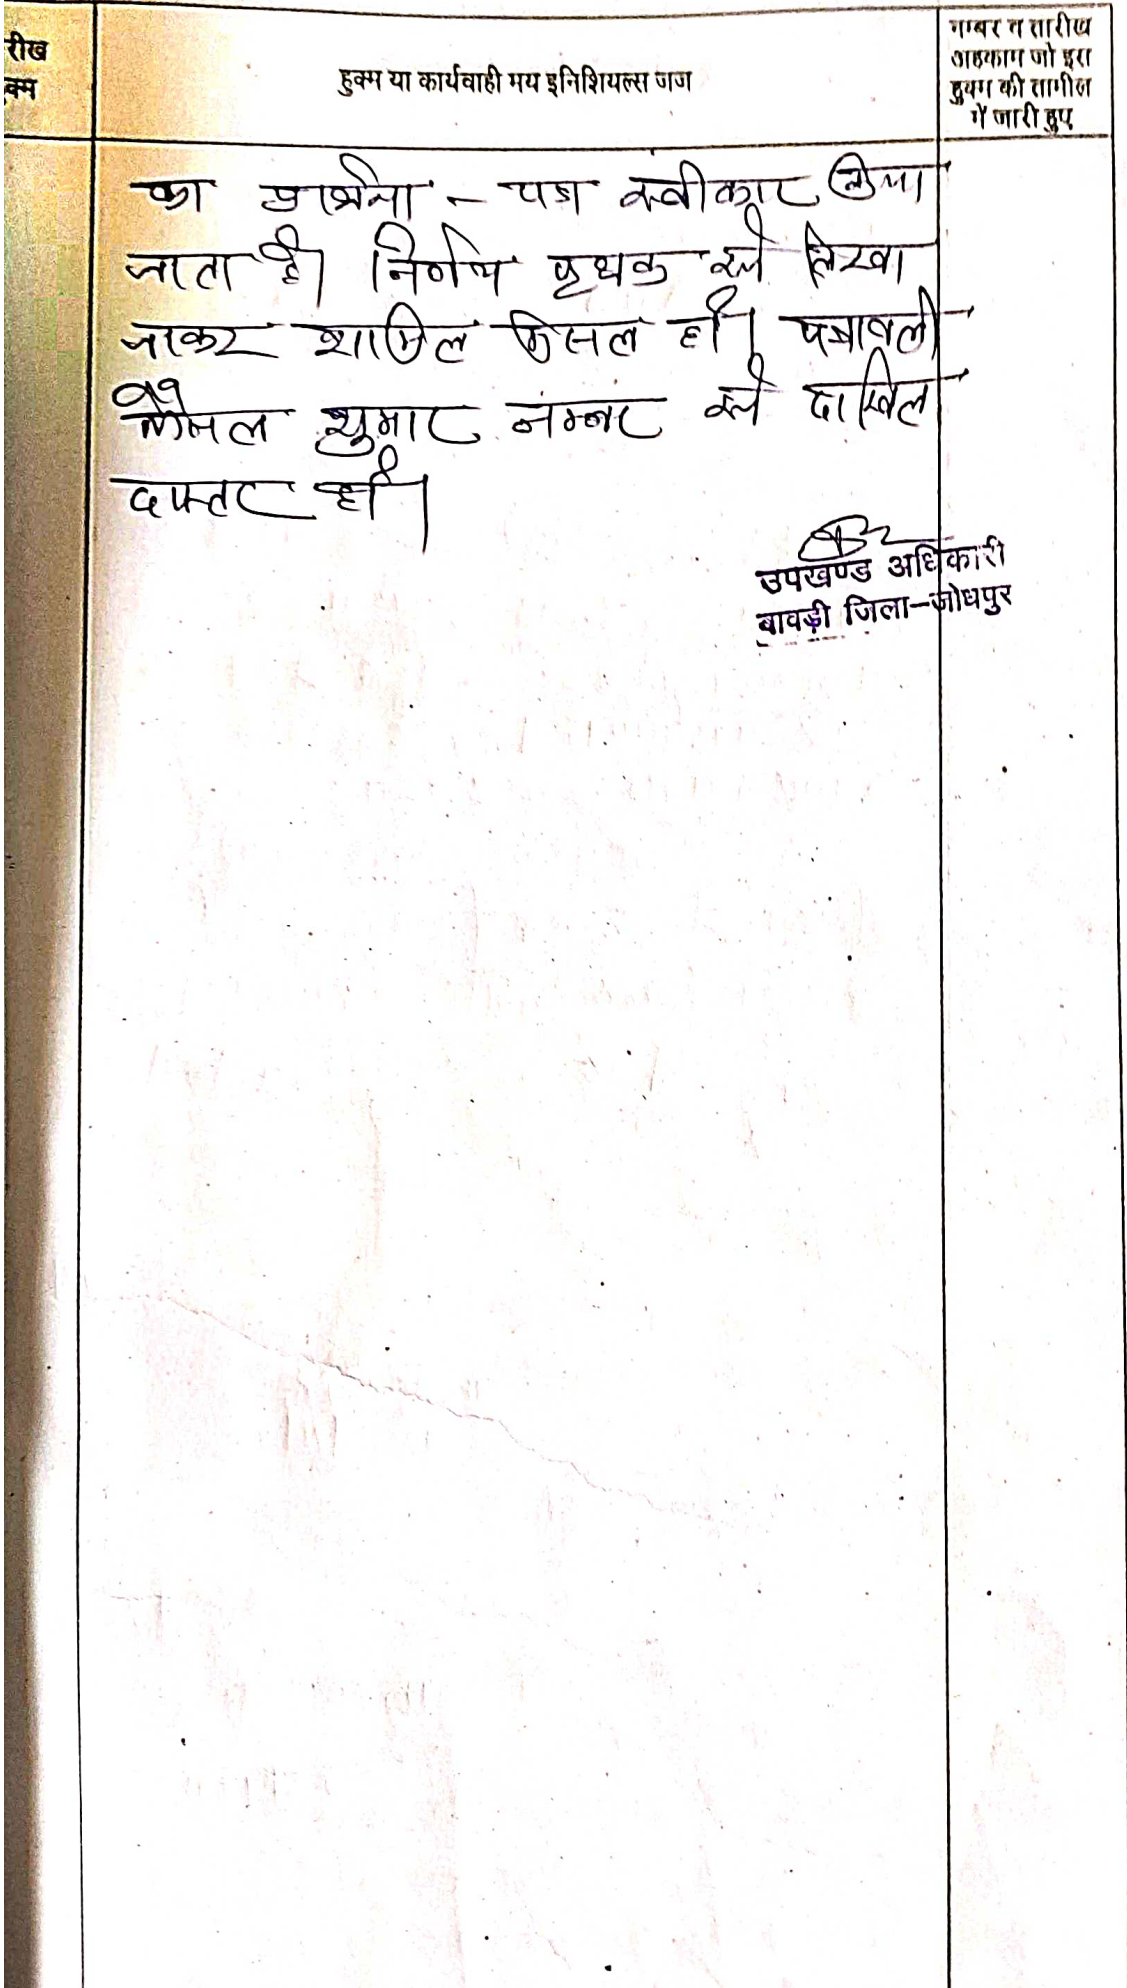 रीख
क्म
हुक्म या कार्यवाही मय इनिशियल्स जज
नम्बर व तारीख
अहकाम जो इस
हुक्म की तामील
में जारी हुए
का प्रार्थना - पत्र स्वीकार किया
जाता है। निर्णय पृथक से लिखा
जाकर शामिल मिसल हो। पत्रावली
फैसल शुमार नम्बर से दाखिल
दफ्तर हो।
उपखण्ड अधिकारी
बावड़ी जिला-जोधपुर